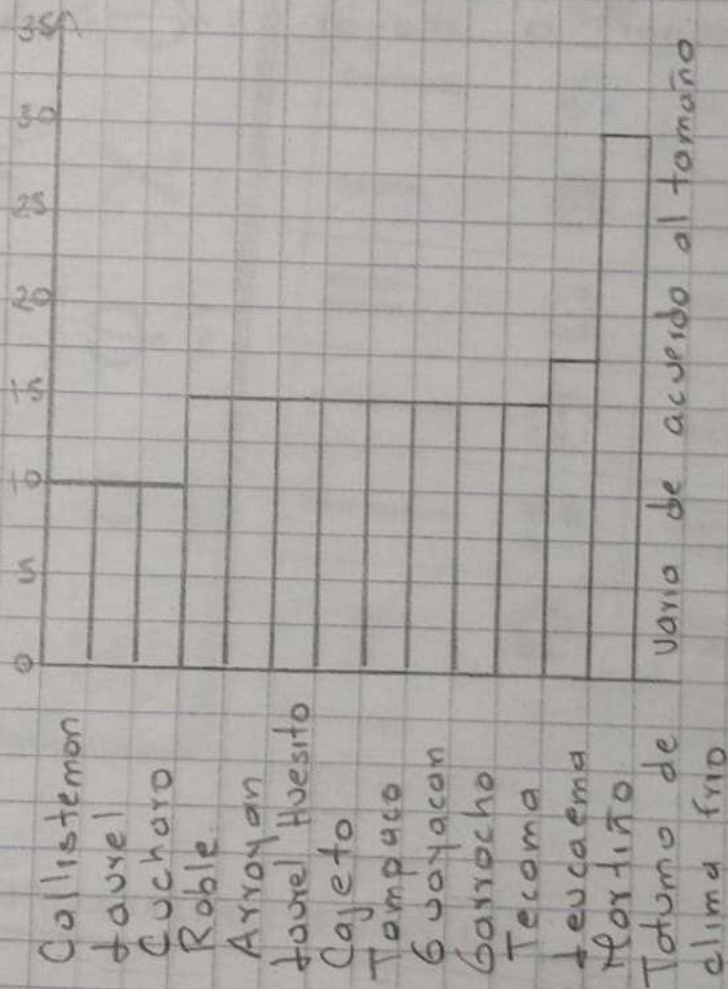 0 5 10 15 20 25 30 35
Callistemon
Laurel
Cucharo
Roble
Arrayan
Laurel Huesito
Cajeto
Tampaco
Guayacan
Garrocho
Tecoma
Leucaema
Mortiño
Totumo de clima frio
varia de acuerdo al tamaño